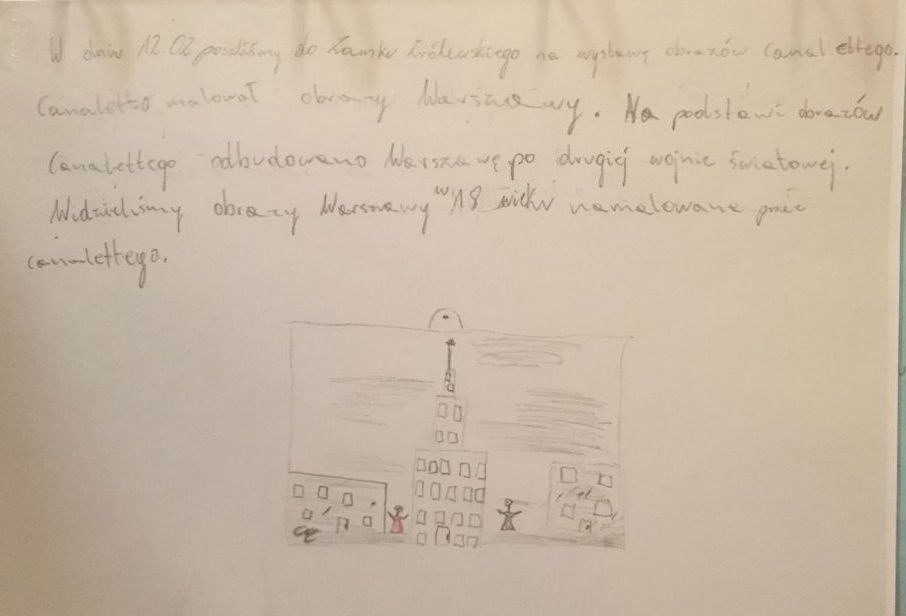 W dniu 12.02 poszliśmy do Zamku Królewskiego na wystawę obrazów Canalettego.
Canaletto malował obrazy Warszawy. Na podstawi obrazów
Canalettego odbudowano Warszawę po drugiej wojnie światowej.
Widzieliśmy obrazy Warszawy w 18 wieku namalowane przez
canalettego.